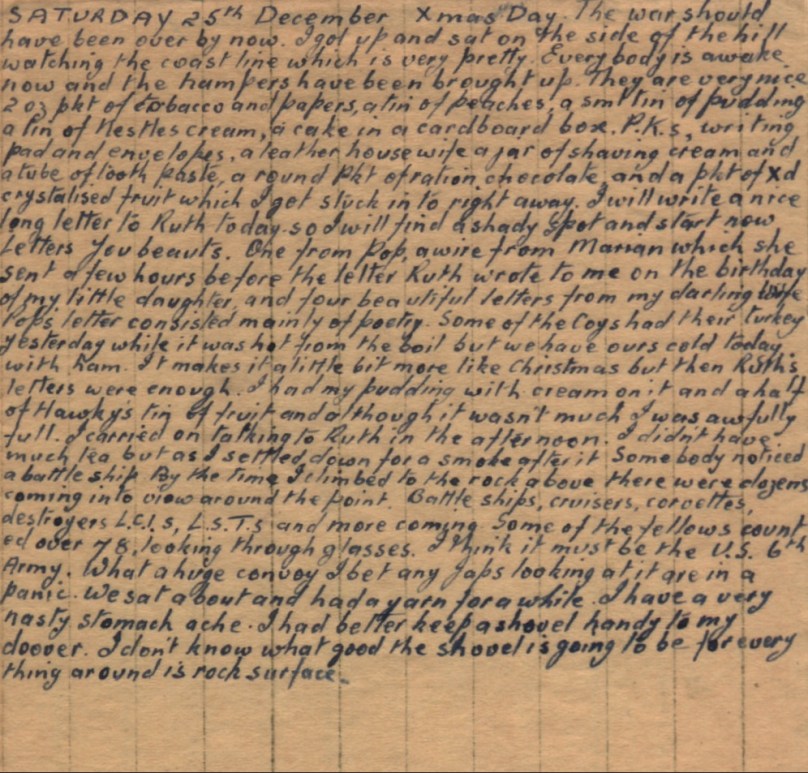 SATURDAY 25th December Xmas Day. The war should
have been over by now. I got up and sat on the side of the hill
watching the coast line which is very pretty. Everybody is awake
now and the hampers have been brought up. They are very nice
2 oz pkt of tobacco and papers, a tin of peaches, a sml tin of pudding
a tin of Nestles cream, a cake in a cardboard box. P.K.s, writing
pad and envelopes, a leather housewife a jar of shaving cream and
a tube of tooth paste, a round pkt of ration chocolate and a pkt of Xd
crystalised fruit which I got stuck in to right away. I will write a nice
long letter to Ruth today so I will find a shady spot and start now
Letters You beauts. One from Pop, a wire from Marian which she
sent a few hours before the letter Ruth wrote to me on the birthday
of my little daughter, and four beautiful letters from my darling wife
Pops letter consisted mainly of poetry. Some of the Coys had their turkey
yesterday while it was hot from the boil but we have ours cold today
with ham. It makes it a little bit more like Christmas but then Ruth's
letters were enough. I had my pudding with cream on it and a half
of Hawkys tin of fruit and although it wasn't much I was awfully
full. I carried on talking to Ruth in the afternoon. I didn't have
much tea but as I settled down for a smoke after it Somebody noticed
a battle ship. By the time I climbed to the rock above there were dozens
coming into view around the point. Battle ships, cruisers, corvettes,
destroyers L.C.I.s, L.S.T.s and more coming. Some of the fellows count
ed over 78, looking through glasses. I think it must be the U.S. 6th
Army. What a huge convoy I bet any Japs looking at it are in a
panic. We sat about and had a yarn for a while. I have a very
nasty stomach ache. I had better keep a shovel handy to my
doover. I don't know what good the shovel is going to be for every
thing around is rock surface.